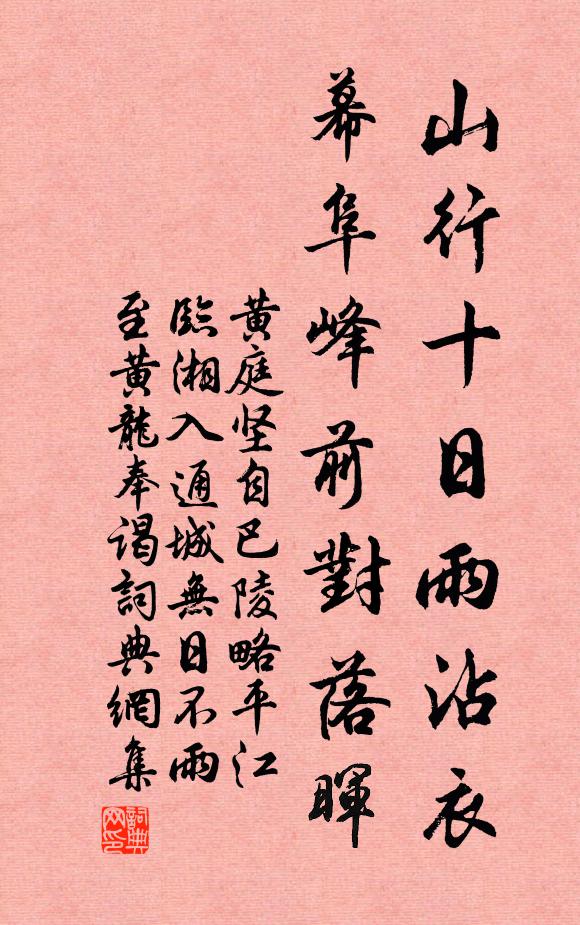 山行十日雨沾衣
幕阜峰前對落暉
黄庭坚自巴陵略平江
臨湘入通城無日不雨
至黄龍奉谒詞典網集
詞典网印